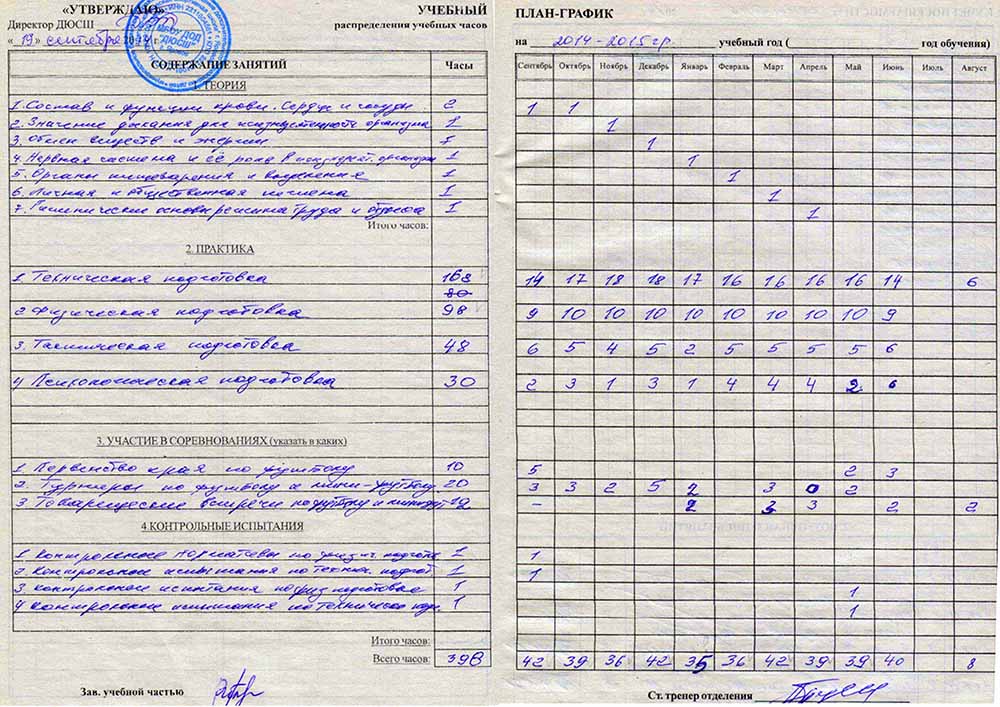 «УТВЕРЖДАЮ»
Директор ДЮСШ
«19» сентября 2014 г.
УЧЕБНЫЙ
распределения учебных часов
СОДЕРЖАНИЕ ЗАНЯТИЙ Часы
1. ТЕОРИЯ
1. Состав и функции крови. Сердце и сосуды. 2
2. Значение дыхания для организма 1
3. Обмен веществ и энергии 1
4. Нервная система и её роль в организма 1
5. Органы пищеварения и выделения 1
6. Личная и общественная гигиена 1
7. Гигиенические основы режима труда и отдыха 1
Итого часов:
2. ПРАКТИКА
1. Техническая подготовка 168
80
2 Физическая подготовка 98
3. Тактическая подготовка 48
4 Психологическая подготовка 30
3. УЧАСТИЕ В СОРЕВНОВАНИЯХ (указать в каких)
1. Первенство края по футболу 10
2. Турниры по футболу и мини-футболу 20
3 Товарищеские встречи по футболу и 12
4.КОНТРОЛЬНЫЕ ИСПЫТАНИЯ
1. Контрольные нормативы по физич. подготов 1
2. Контрольные испытания по технич. подгот 1
3 контрольные испытания по физ подготовке 1
4 контрольные испытания по технической 1
Итого часов:
Всего часов: 398
Зав. учебной частью
ПЛАН-ГРАФИК
на 2014-2015 гг. учебный год ( год обучения)
Сентябрь Октябрь Ноябрь Декабрь Январь Февраль Март Апрель Май Июнь Июль Август
1 1
1
1
1
1
1
1
14 17 18 18 17 16 16 16 16 14 6
9 10 10 10 10 10 10 10 10 9
6 5 4 5 2 5 5 5 5 6
2 3 1 3 1 4 4 4 2 6
5 2 3
3 3 2 5 2 3 0 2
- 2 3 3 2 2
1
1
1
1
42 39 36 42 35 36 42 39 39 40 8
Ст. тренер отделения